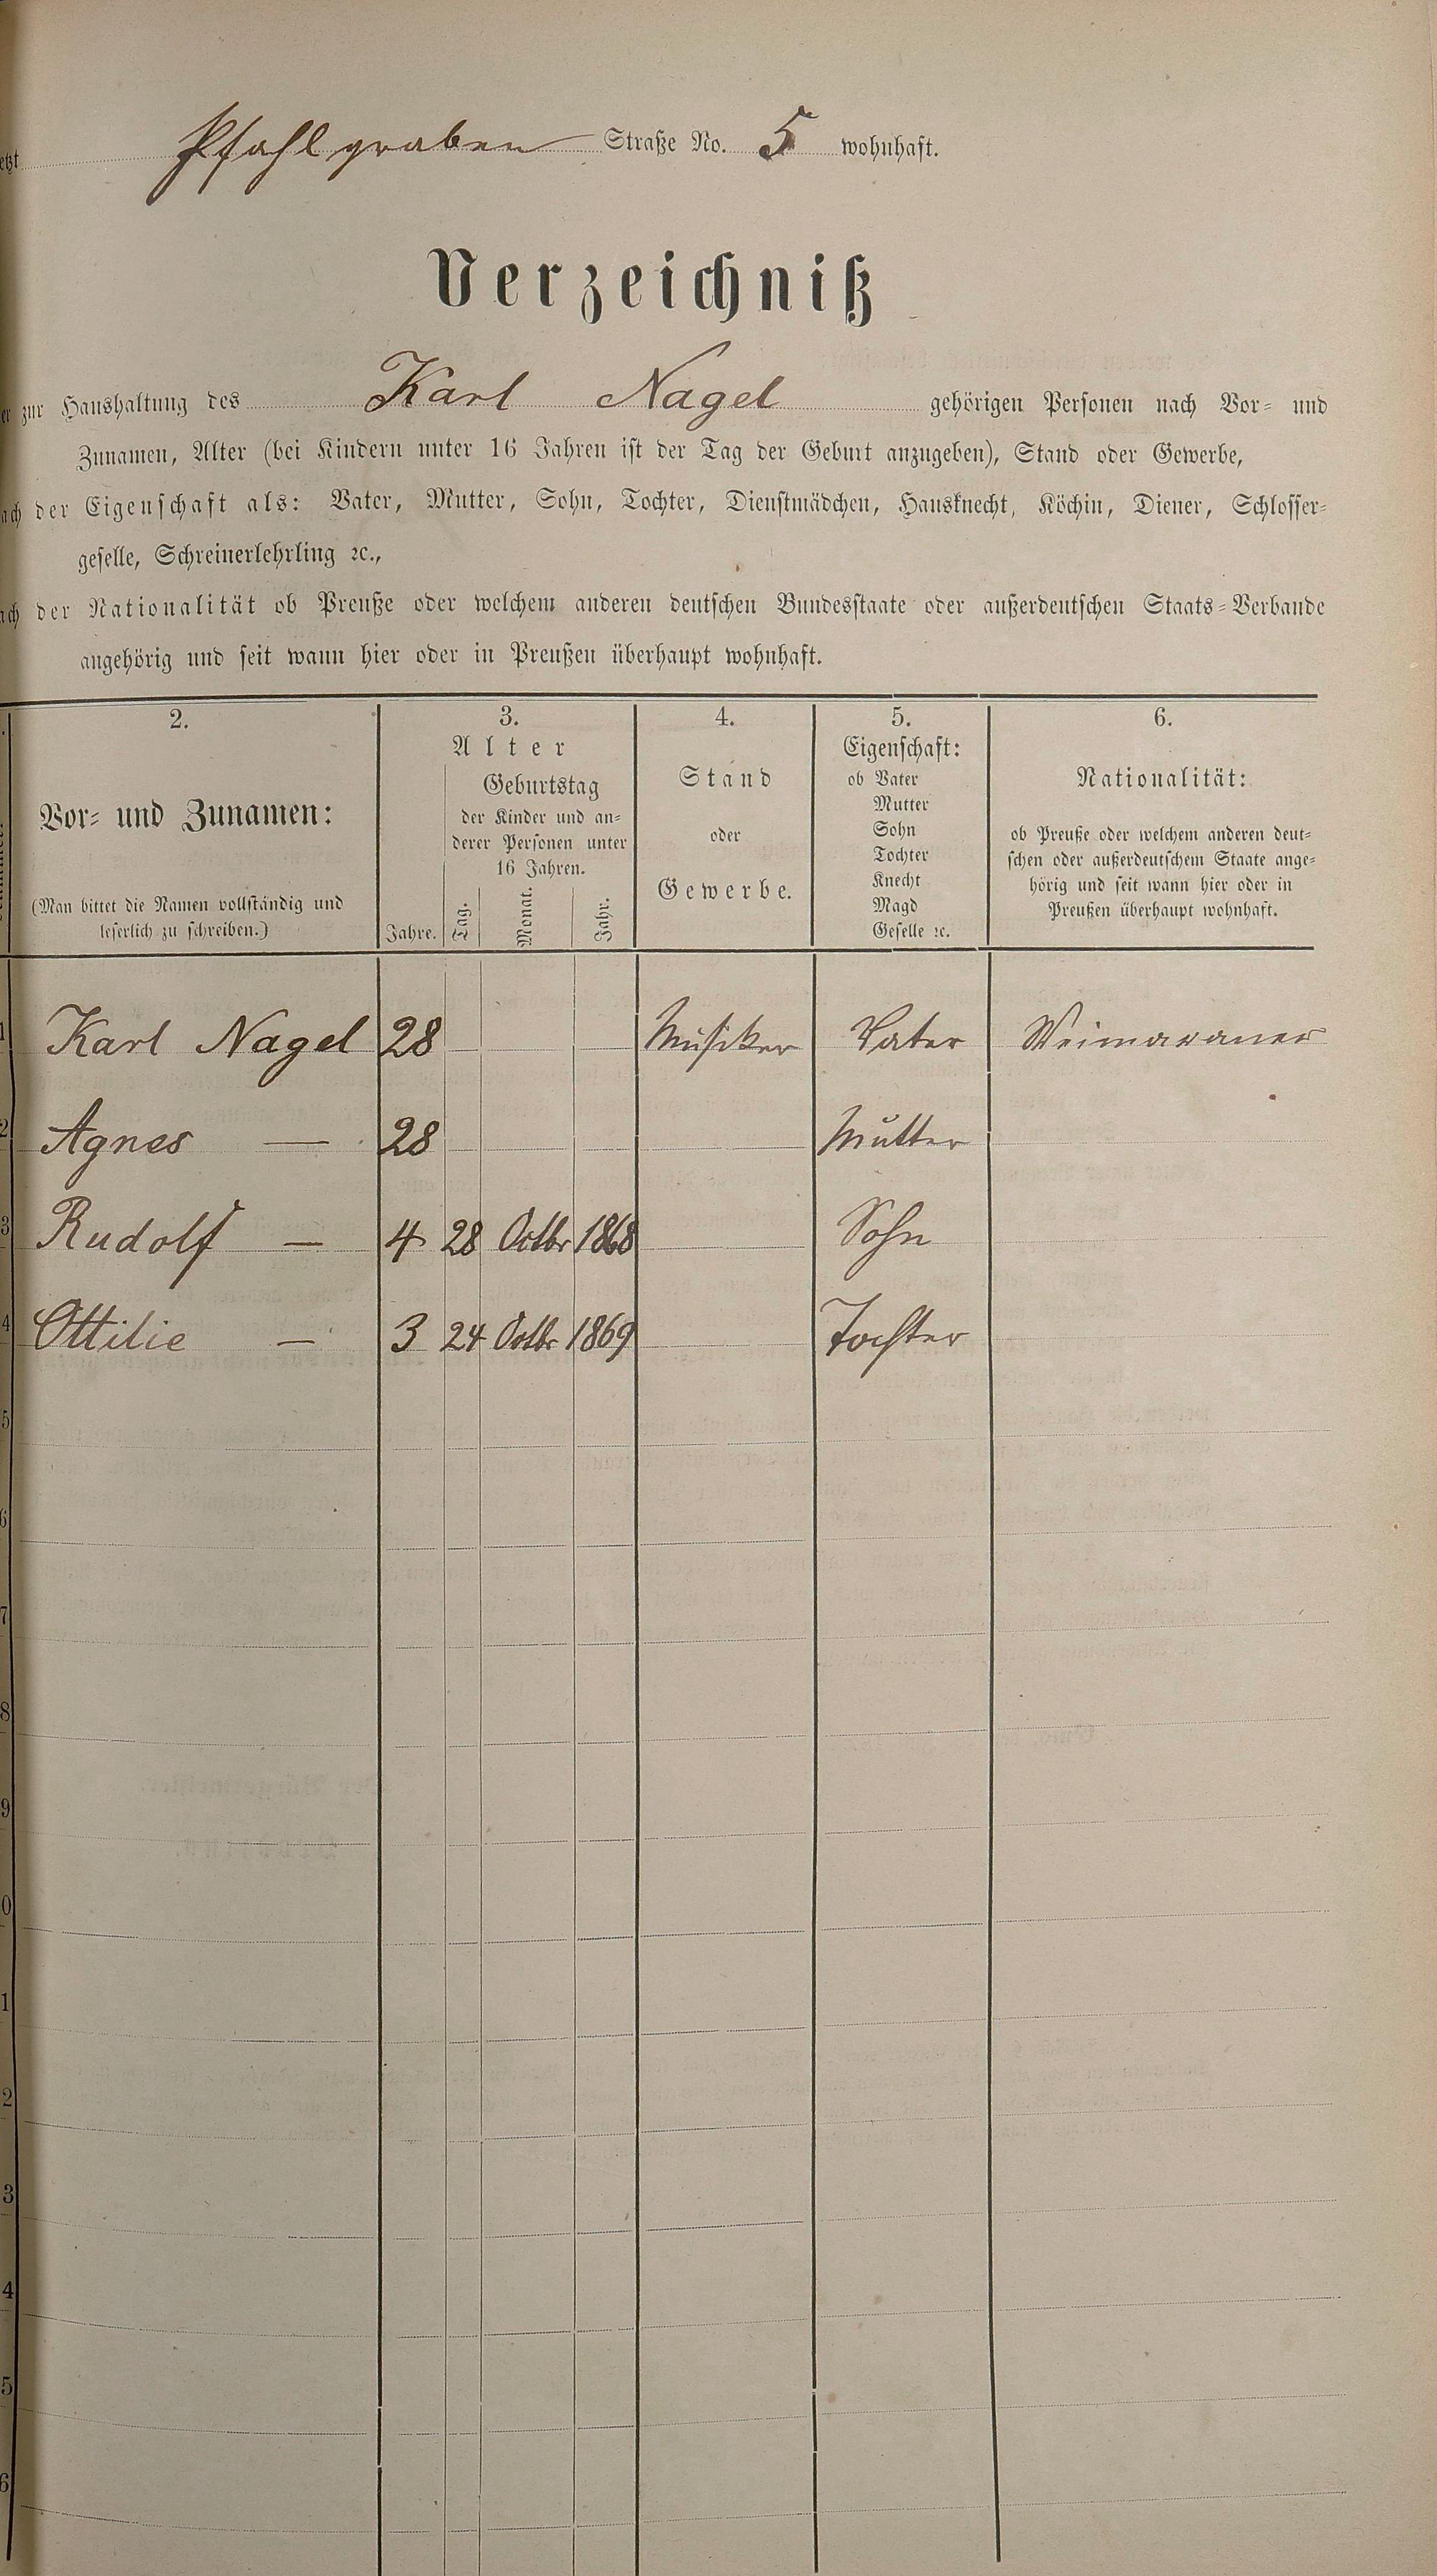 Pfahlgraben Straße No. 5 wohnhaft.
Verzeichniß
zur Haushaltung des Karl Nagel gehörigen Personen nach Vor- und
Zunamen, Alter (bei Kindern unter 16 Jahren ist der Tag der Geburt anzugeben), Stand oder Gewerbe,
der Eigenschaft als: Vater, Mutter, Sohn, Tochter, Dienstmädchen, Hausknecht, Köchin, Diener, Schlosser-
geselle, Schreinerlehrling ꝛc.,
der Nationalität ob Preuße oder welchem anderen deutschen Bundesstaate oder außerdeutschen Staats-Verbande
angehörig und seit wann hier oder in Preußen überhaupt wohnhaft.
2.
Vor- und Zunamen:
(Man bittet die Namen vollständig und
leserlich zu schreiben.)
3.
Alter
Jahre.
Geburtstag
der Kinder und an-
derer Personen unter
16 Jahren.
Tag.
Monat.
Jahr.
4.
Stand
oder
Gewerbe.
5.
Eigenschaft:
ob Vater
Mutter
Sohn
Tochter
Knecht
Magd
Geselle ꝛc.
6.
Nationalität:
ob Preuße oder welchem anderen deut-
schen oder außerdeutschem Staate ange-
hörig und seit wann hier oder in
Preußen überhaupt wohnhaft.
1 Karl Nagel 28 Musiker Vater Weimaraner
2 Agnes — 28 Mutter
3 Rudolf — 4 28 Octbr 1868 Sohn
4 Ottilie — 3 24 Octbr 1869 Tochter
5
6
7
8
9
0
1
2
3
4
5
6